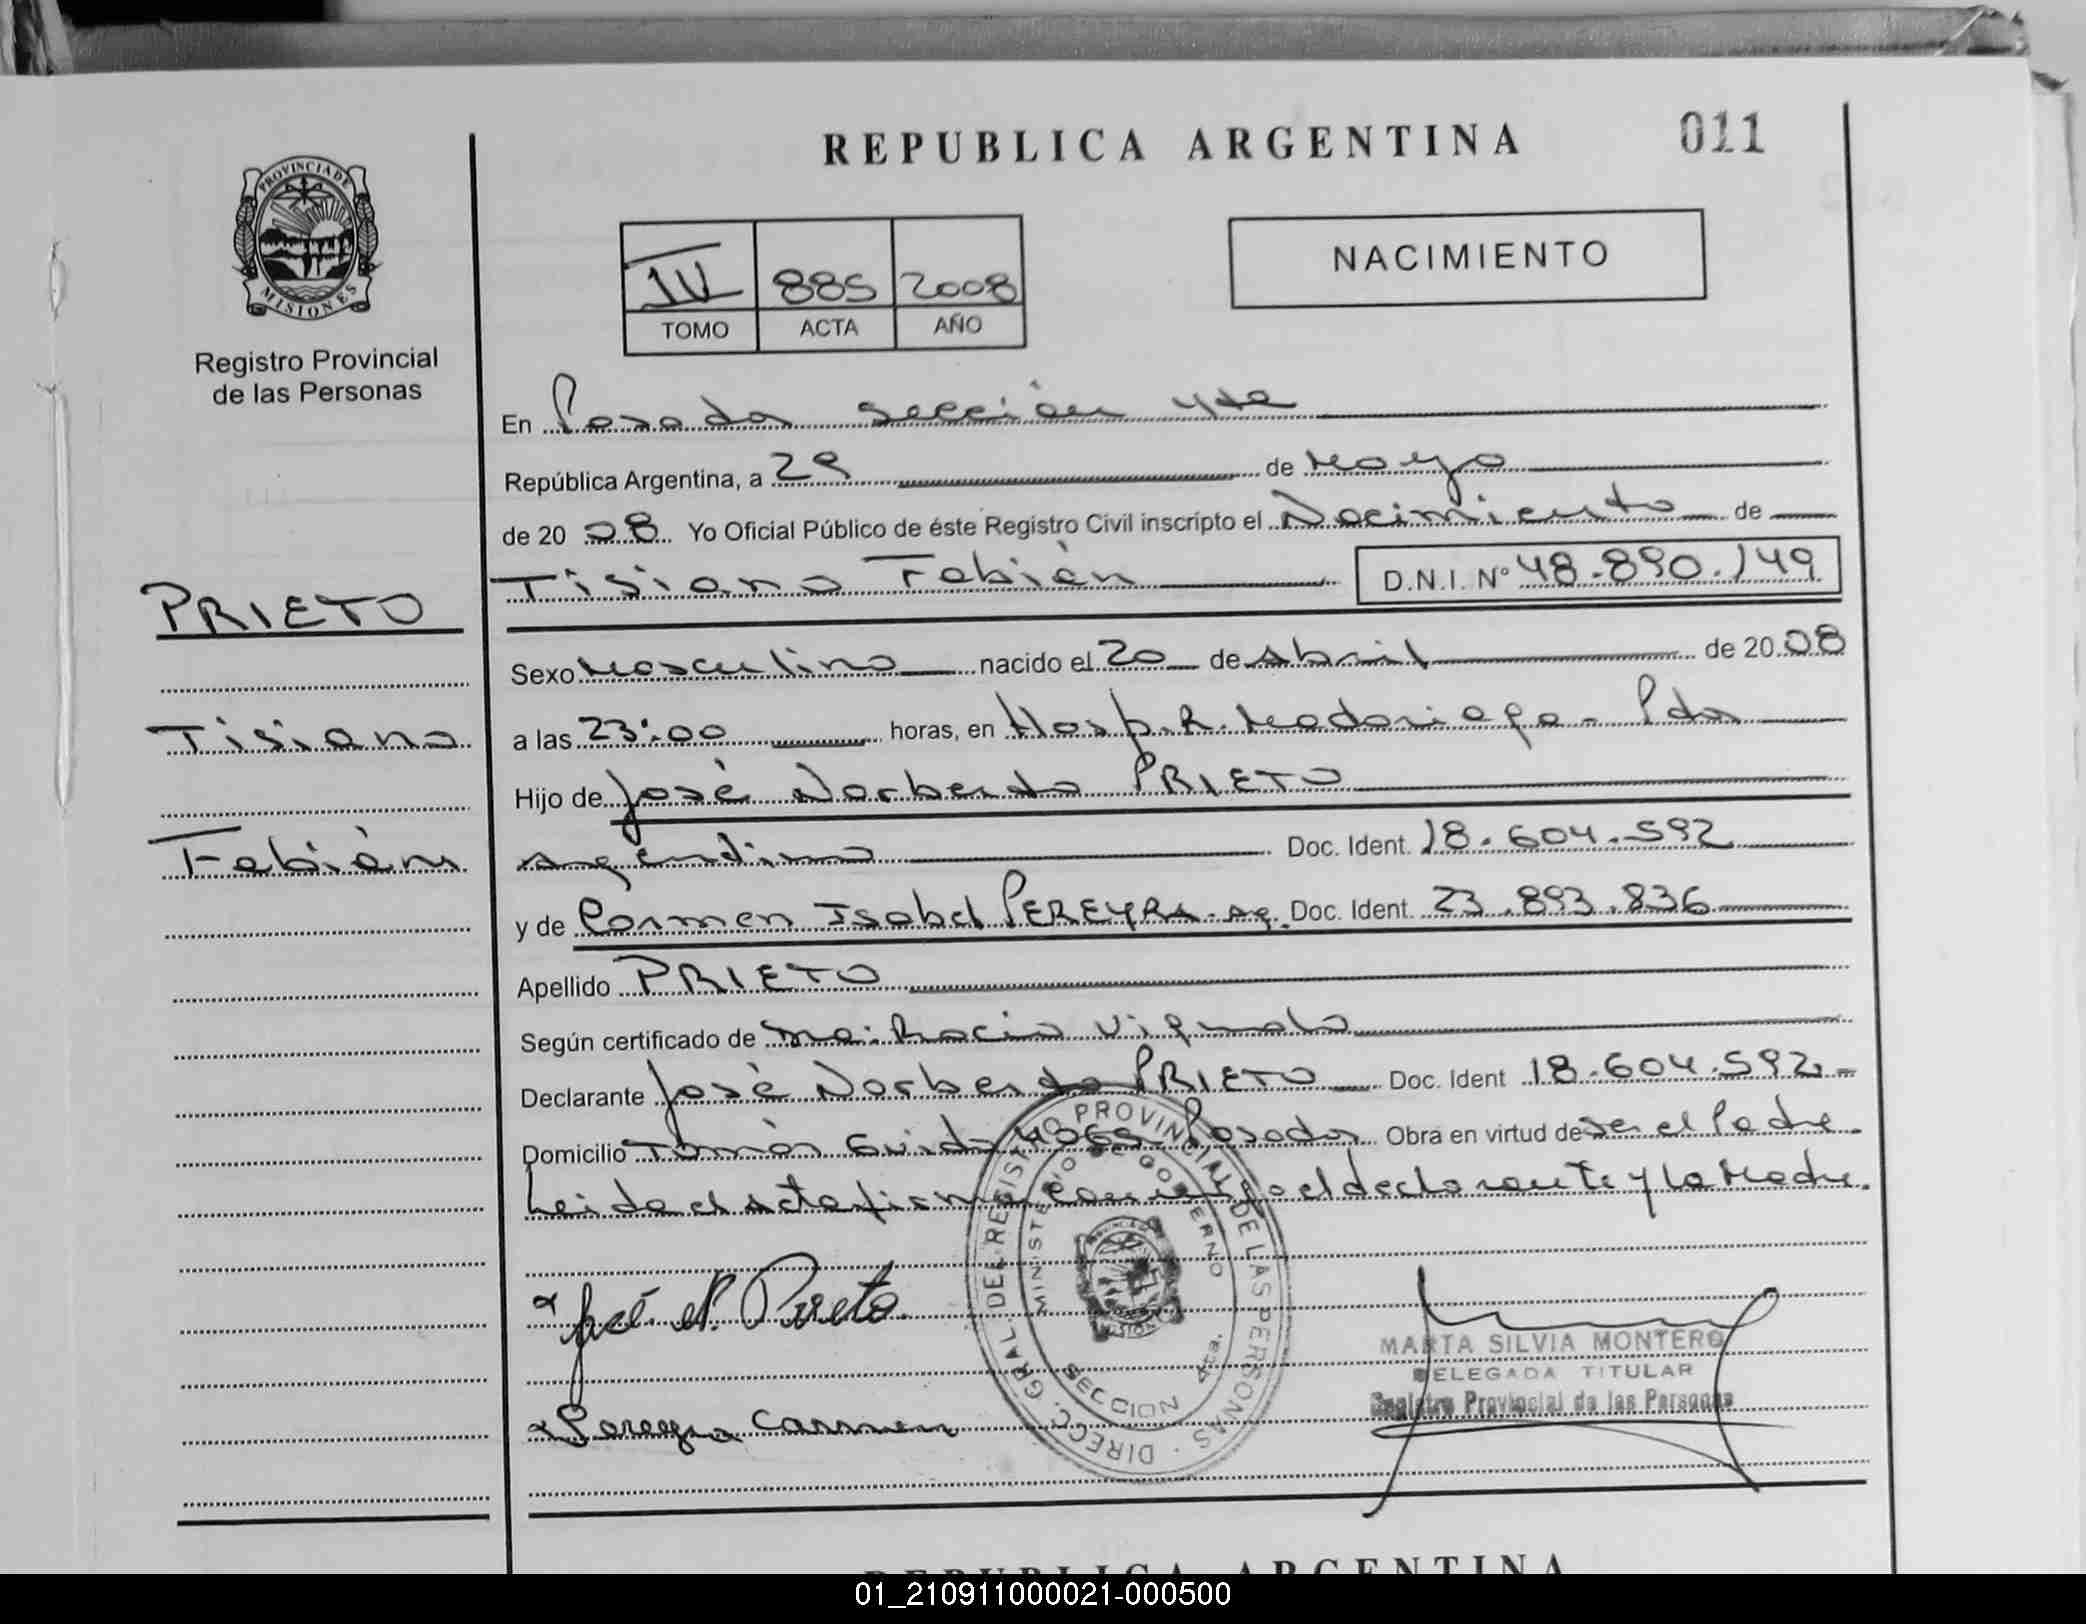 REPUBLICA ARGENTINA
011
PROVINCIA DE
MISIONES
Registro Provincial
de las Personas
IV 885 2008
TOMO ACTA AÑO
NACIMIENTO
En Posadas sección 4ta
República Argentina, a 29 de Mayo
de 2008 Yo Oficial Público de éste Registro Civil inscripto el Nacimiento de
Tisiano Fabián D.N.I. Nº 48.890.149
PRIETO
Tisiano
Fabián
Sexo Masculino nacido el 20 de Abril de 2008
a las 23:00 horas, en Hosp. R. Madariaga - Pdas
Hijo de José Norberto PRIETO
Argentino Doc. Ident. 18.604.592
y de Carmen Isabel PEREYRA - Ag. Doc. Ident. 23.893.836
Apellido PRIETO
Según certificado de Rocio
Declarante José Norberto PRIETO Doc. Ident 18.604.592.-
Domicilio Tomás Guido 4065 Posadas Obra en virtud de ser el Padre.
Leida el acta firma conmigo el declarante y la Madre.
José N. Prieto.
Pereyra Carmen
DIRECC. GRAL. DEL REGISTRO PROVINCIAL DE LAS PERSONAS
MINISTERIO DE GOBIERNO
SECCION 4ta.
MARTA SILVIA MONTERO
DELEGADA TITULAR
Registro Provincial de las Personas
REPUBLICA ARGENTINA
01_210911000021-000500